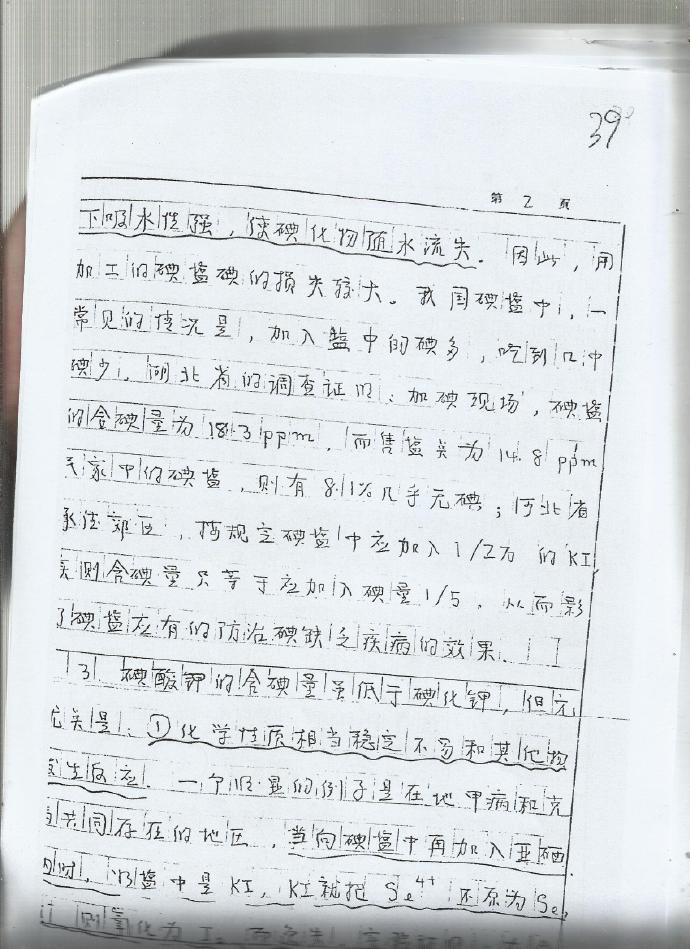 39
第 2 页
下吸水性强，使碘化物随水流失。因此，用
加工的碘盐碘的损失较大。我国碘盐中，一
常见的情况是，加入盐中的碘多，吃到口中
碘少。湖北省的调查证明：加碘现场，碘盐
的含碘量为18.3ppm，而售盐关为14.8ppm
家中的碘盐，则有8.1%几乎无碘；河北省
承德郊区，按规定碘盐中应加入1/2万的KI
实则含碘量只等于应加入碘量1/5，从而影
了碘盐应有的防治碘缺乏疾病的效果。
3. 碘酸钾的含碘量虽低于碘化钾，但它
优关是：①化学性质相当稳定不易和其他物
发生反应。一个明显的例子是在地甲病和克
共同存在的地区，当向碘盐中再加入亚硒
时，如盐中是KI，KI就把Se4+还原为Se，
则氧化为I2